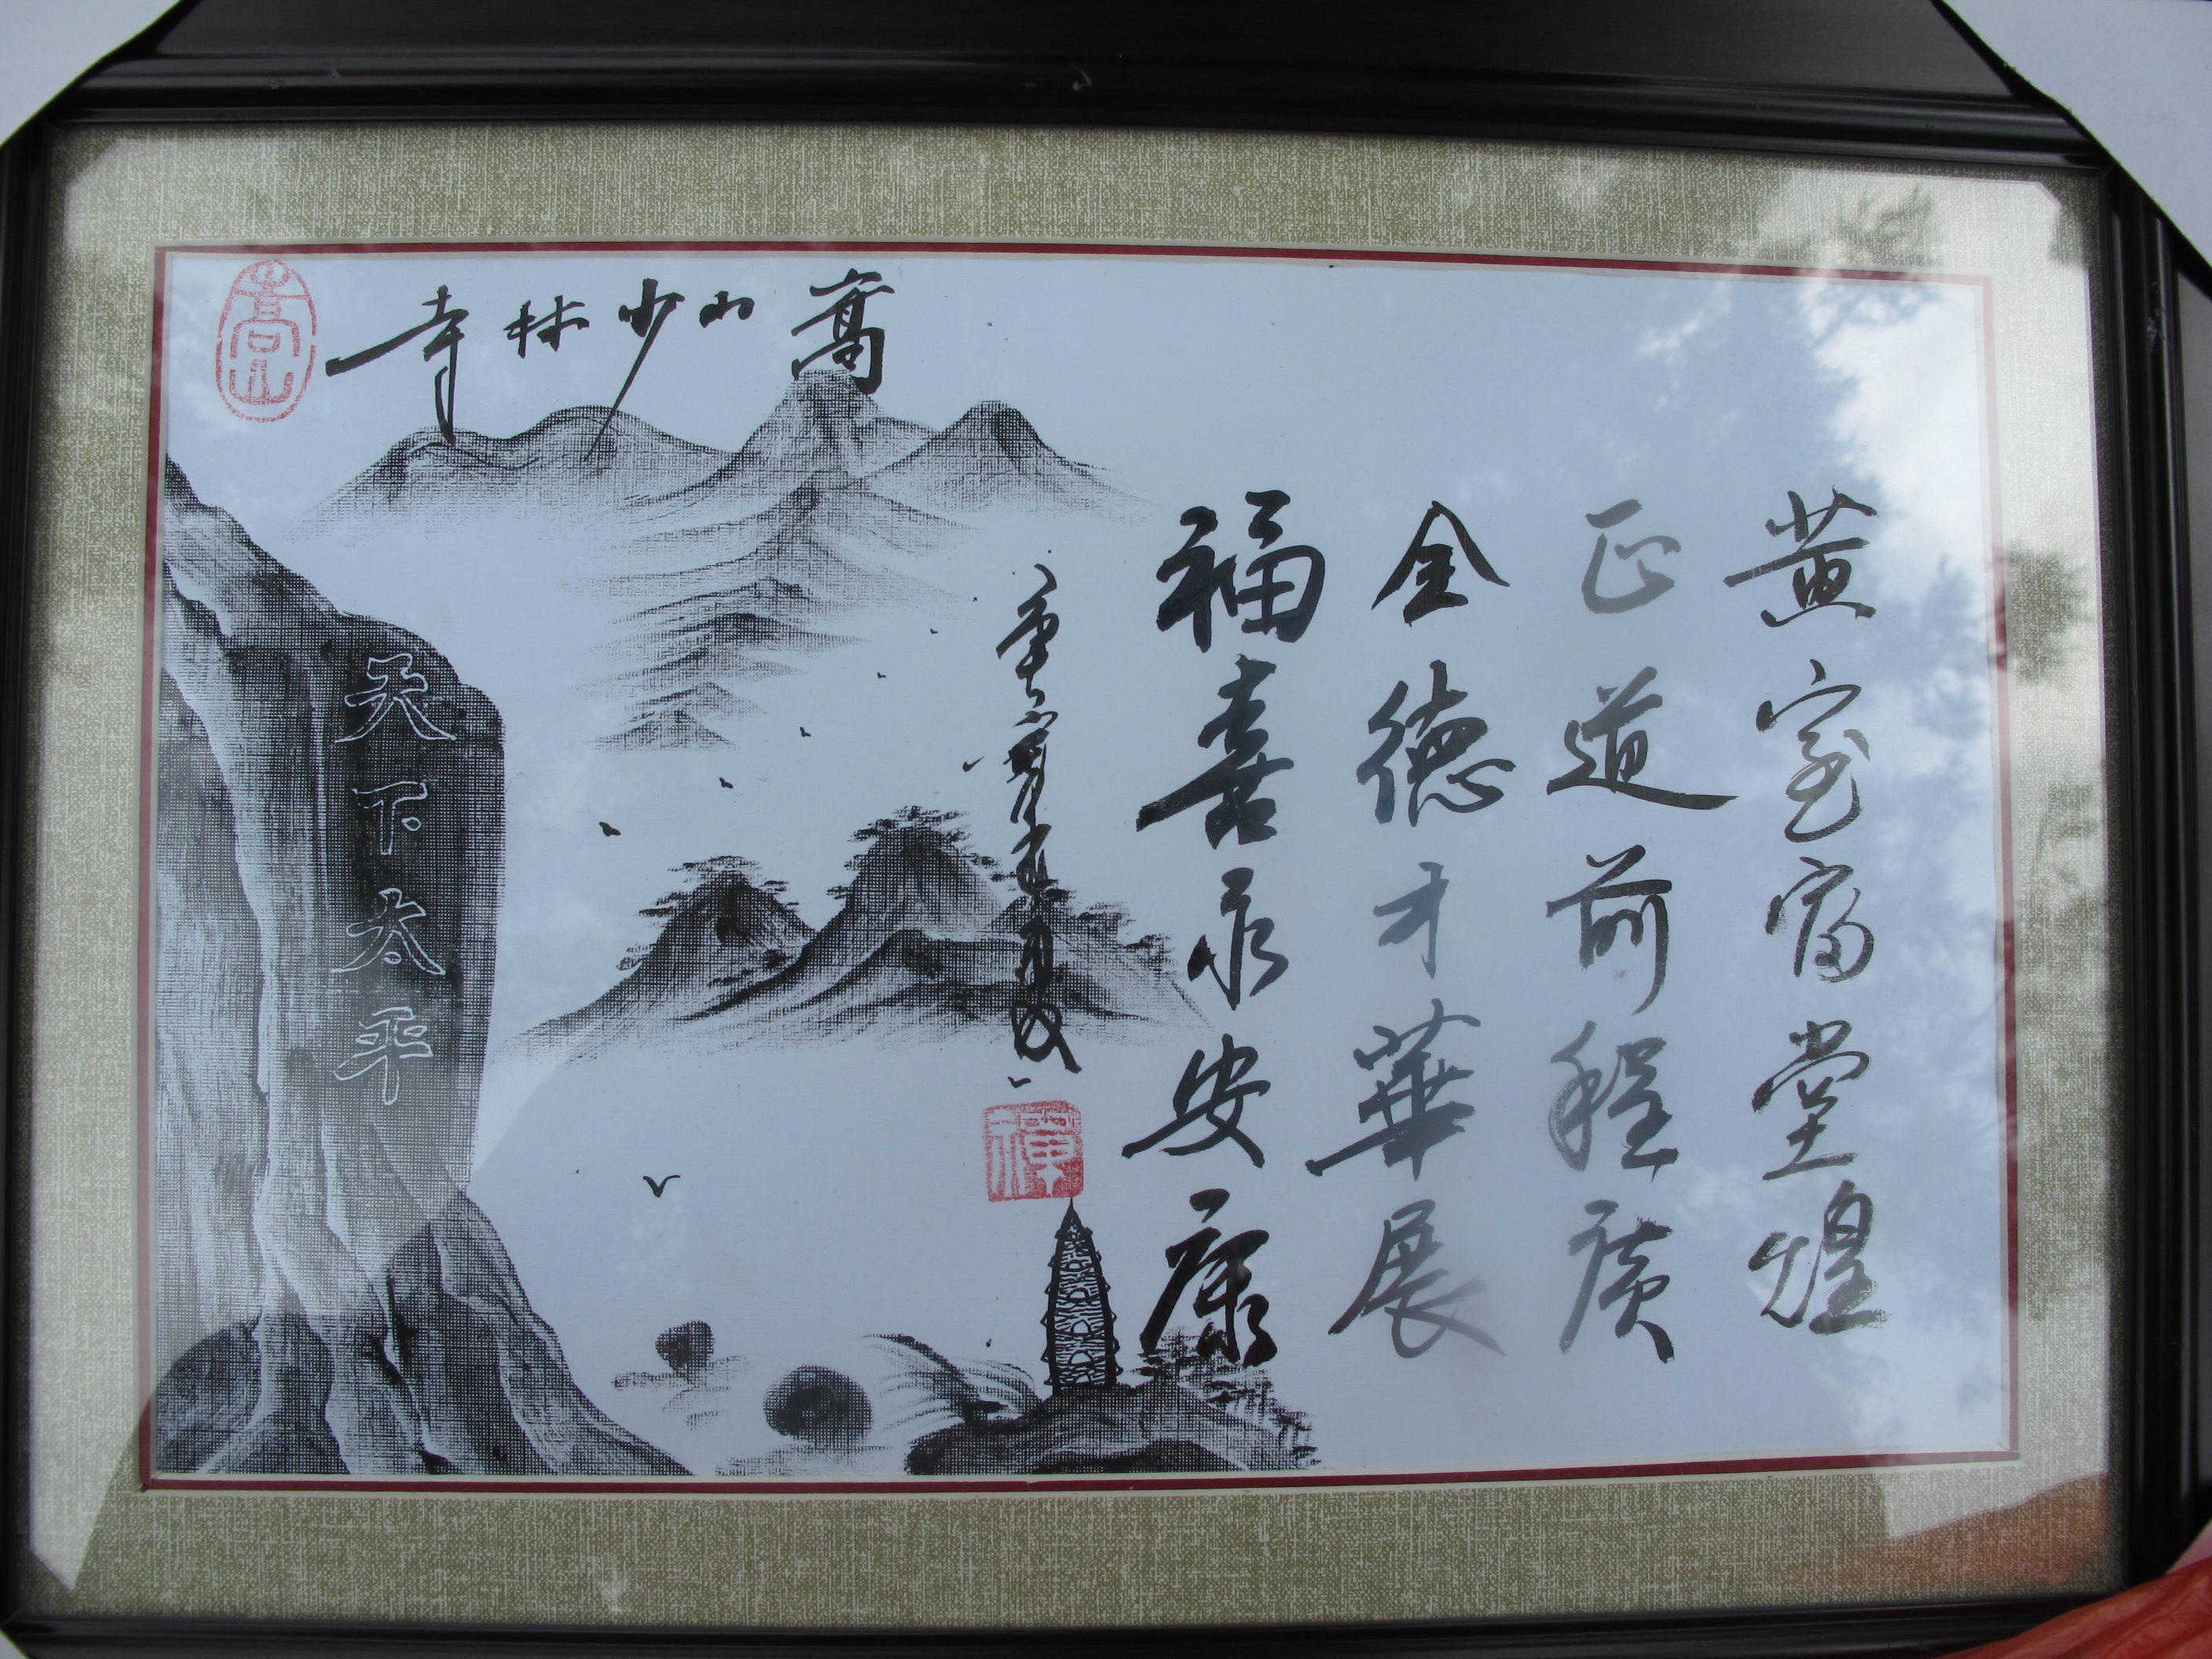 嵩山少林寺
黄室富堂煌
正道前程廣
全德才華展
福喜永安康
禪
天下太平